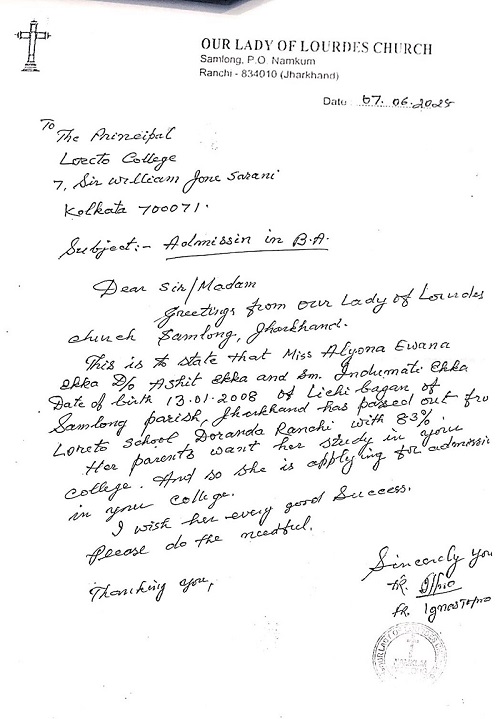 OUR LADY OF LOURDES CHURCH
Samlong, P.O. Namkum
Ranchi - 834010 (Jharkhand)
Date: 07.06.2025
To
The Principal
Loreto College
7, Sir William Jone Sarani
Kolkata 700071.
Subject:- Admissin in B.A.
Dear Sir/Madam
Greetings from our Lady of Lourdes
church Samlong, Jharkhand.
This is to state that Miss Alyona Ewana
Ekka D/o Ashit Ekka and Sm. Indumati Ekka
Date of birth 13.01.2008 of Lichi bagan of
Samlong parish, Jharkhand has passed out fro
Loreto School Doranda Ranchi with 83%.
Her parents want her study in your
college. And so she is applying for admissio
in your college.
I wish her every good Success.
Please do the needful.
Thanking you,
Sincerely you
FR.
FR.
OUR LADY OF